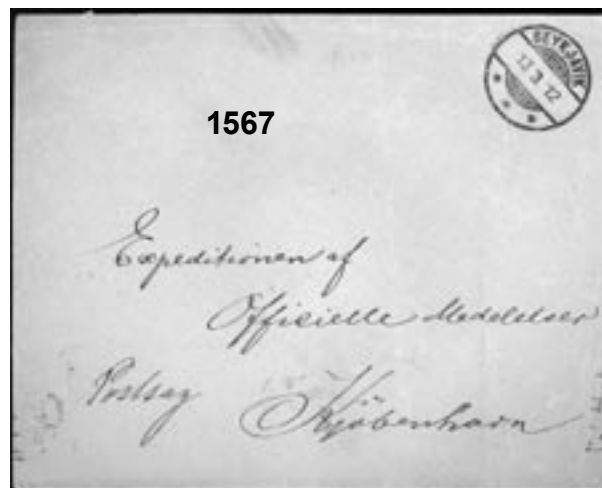 REYKJAVIK
13.3.12
1567
Expeditionen af
Officielle Medelelser
Postsag
Kjøbenhavn